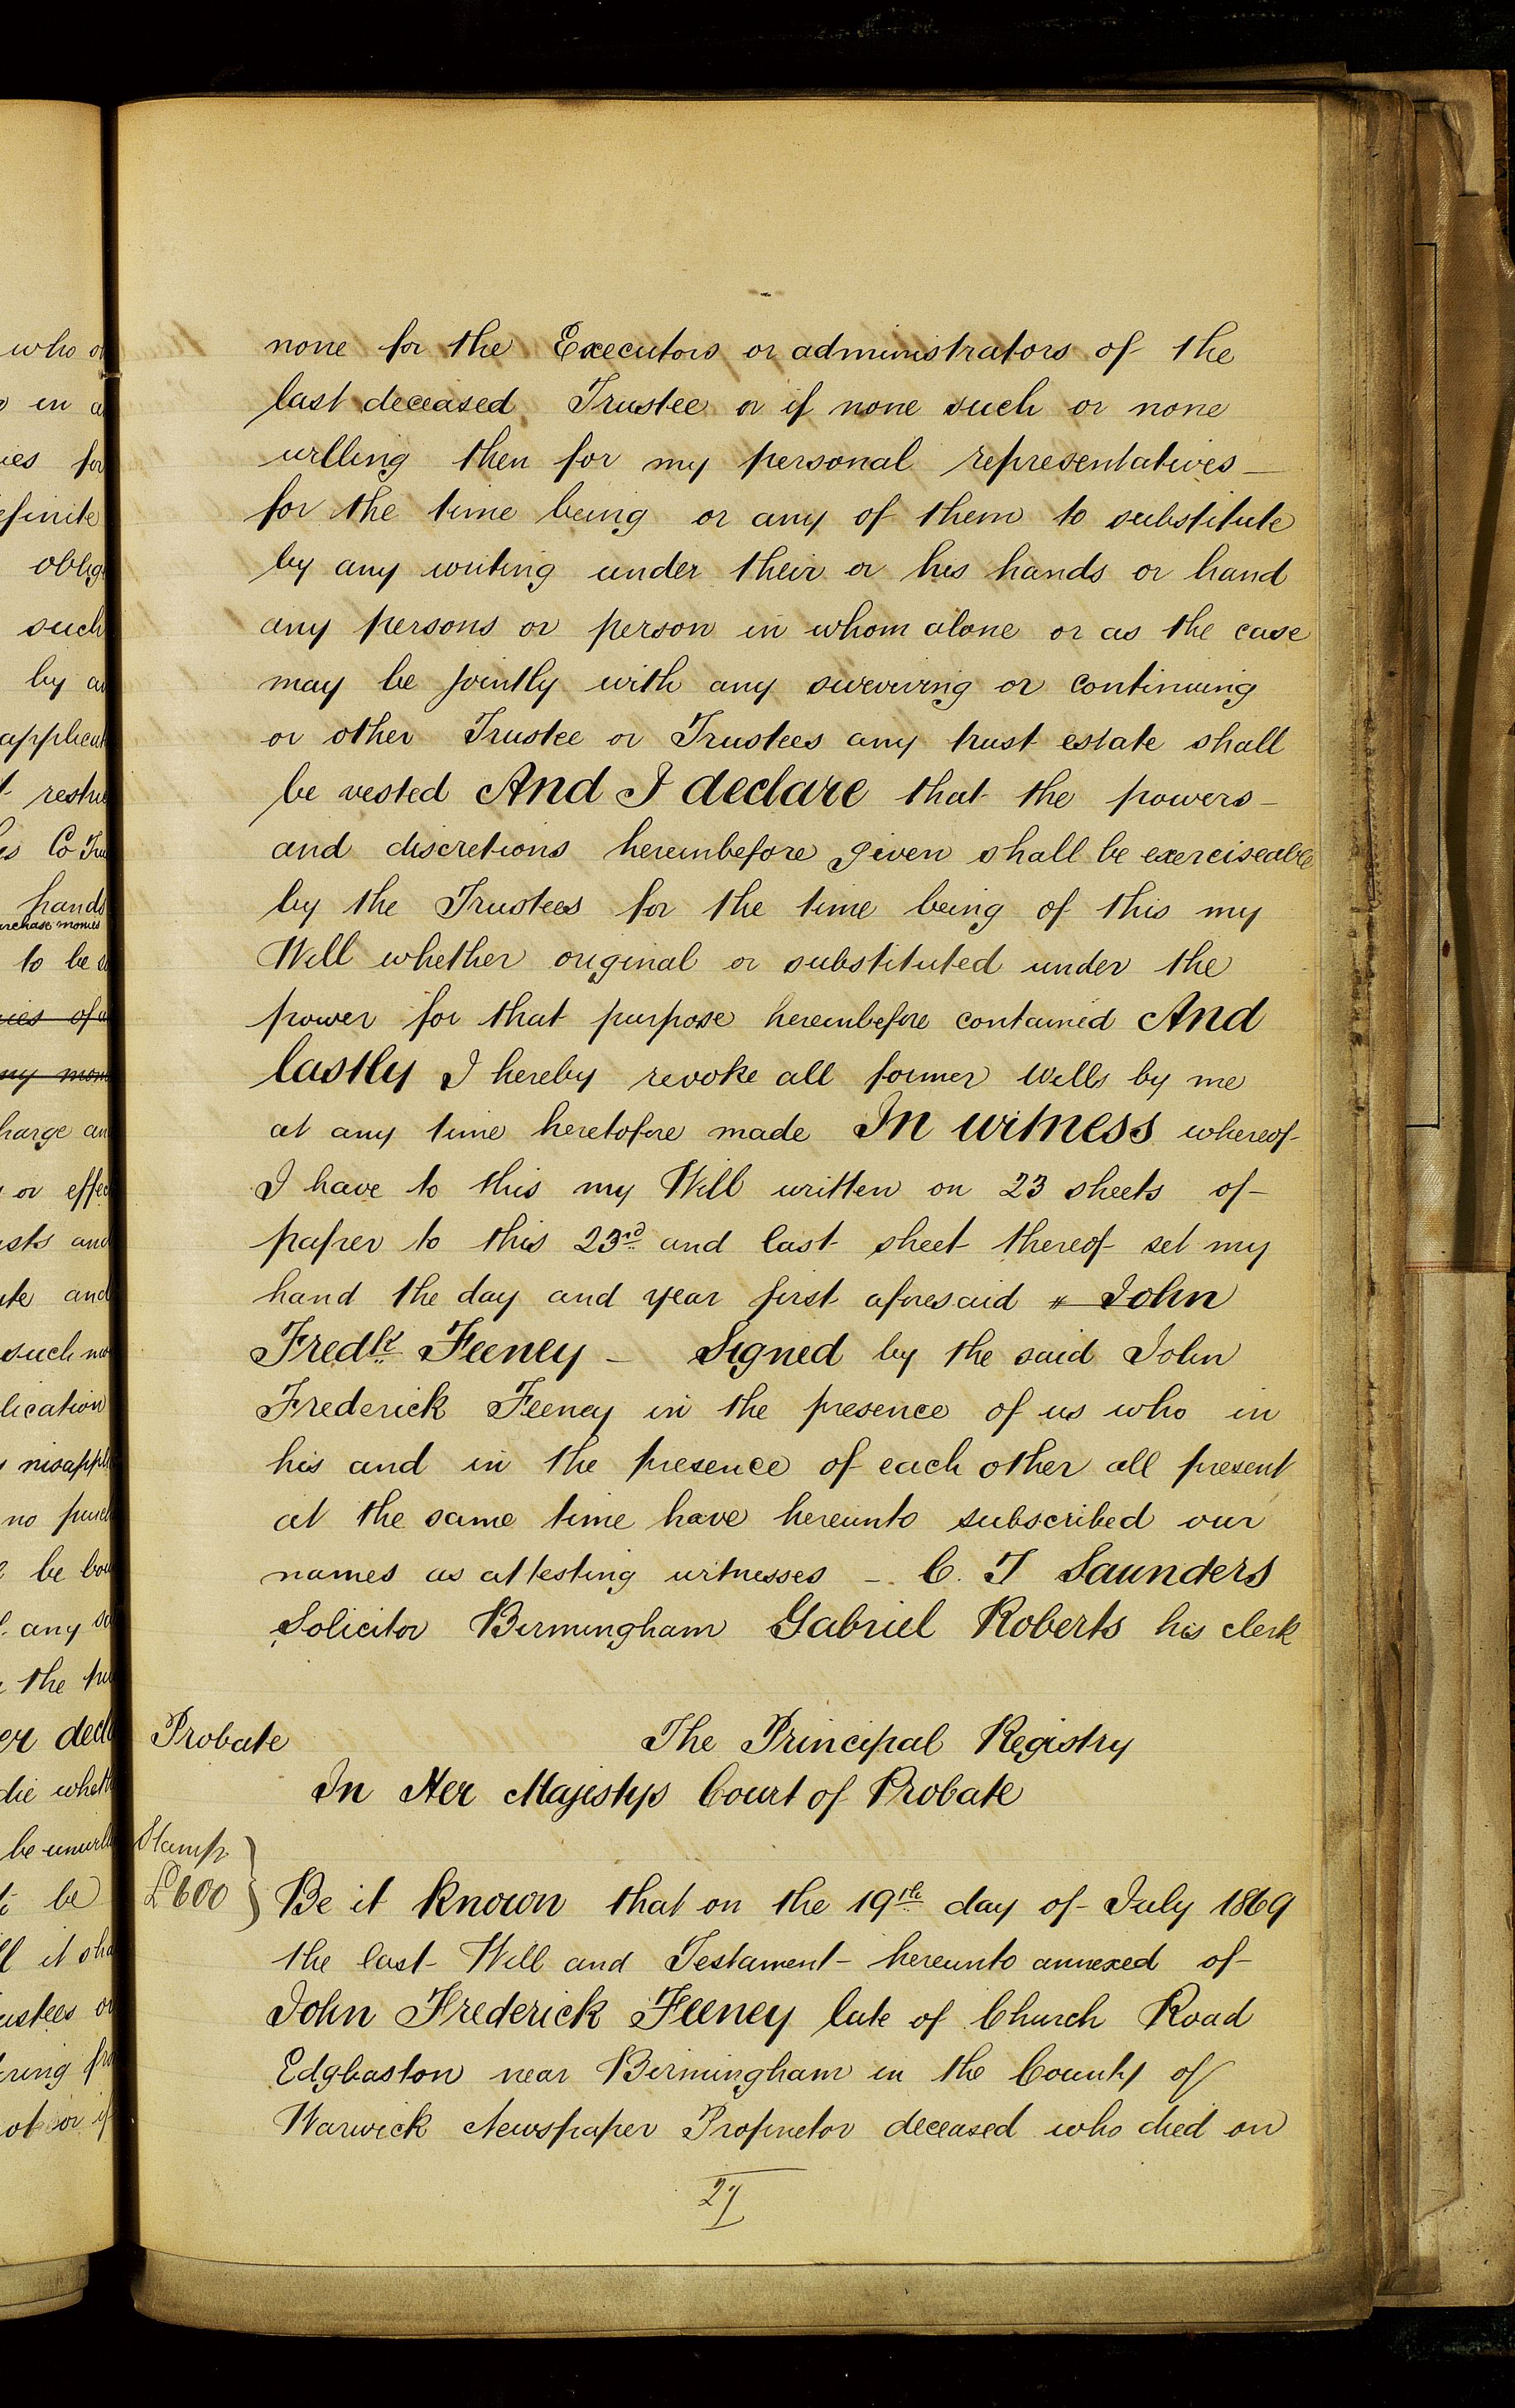 none for the Executors or administrators of the
last deceased Trustee or if none such or none
willing then for my personal representatives —
for the time being or any of them to substitute
by any writing under their or his hands or hand
any persons or person in whom alone or as the case
may be jointly with any surviving or continuing
or other Trustee or Trustees any trust estate shall
be vested And I declare that the powers —
and discretions hereinbefore given shall be exerciseable
by the Trustees for the time being of this my
Will whether original or substituted under the
power for that purpose hereinbefore contained And
lastly I hereby revoke all former Wills by me
at any time heretofore made In witness whereof
I have to this my Will written on 23 sheets of
paper to this 23rd and last sheet thereof set my
hand the day and year first aforesaid John
Fredk Feeney — Signed by the said John
Frederick Feeney in the presence of us who in
his and in the presence of each other all present
at the same time have hereunto subscribed our
names as attesting witnesses — C. T Saunders
Solicitor Birmingham Gabriel Roberts his clerk
Probate The Principal Registry
In Her Majestys Court of Probate
Stamp
£600 } Be it known that on the 19th day of July 1869
the last Will and Testament hereunto annexed of
John Frederick Feeney late of Church Road
Edgbaston near Birmingham in the County of
Warwick Newspaper Proprietor deceased who died on
27
who
in
for
efinite
such
by
Co
hands
to be
or
and
and
such
lication
no
be
any
the
die
be
be
it
or
or if